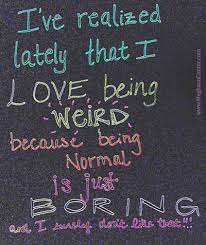 I've realized
lately that I
LOVE being
WEIRD
because being
Normal
is just
BORING
and I surely don't like that!!!